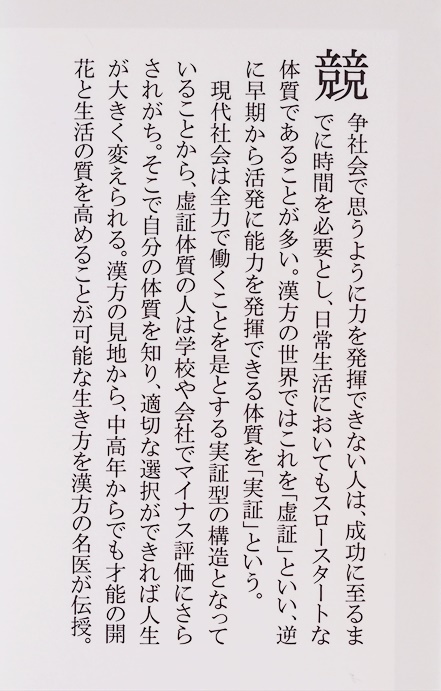 競争社会で思うように力を発揮できない人は、成功に至るま
でに時間を必要とし、日常生活においてもスロースタートな
体質であることが多い。漢方の世界ではこれを「虚証」といい、逆
に早期から活発に能力を発揮できる体質を「実証」という。
現代社会は全力で働くことを是とする実証型の構造となって
いることから、虚証体質の人は学校や会社でマイナス評価にさら
されがち。そこで自分の体質を知り、適切な選択ができれば人生
が大きく変えられる。漢方の見地から、中高年からでも才能の開
花と生活の質を高めることが可能な生き方を漢方の名医が伝授。